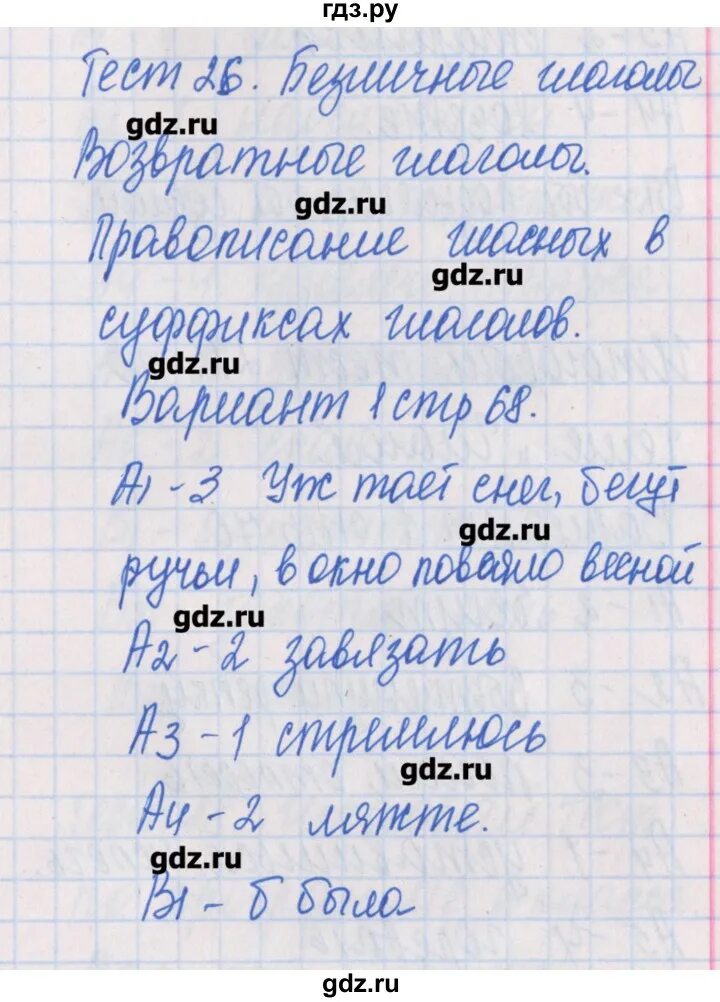 гдз.ру
Тест 26. Безличные глаголы
gdz.ru
Возвратные глаголы.
gdz.ru
Правописание гласных в
gdz.ru
суффиксах глаголов.
gdz.ru
Вариант 1 стр 68.
А1 - 3 Уж тает снег, бегут
gdz.ru
ручьи, в окно повеяло весной
gdz.ru
А2 - 2 завязать
А3 - 1 стремлюсь
gdz.ru
А4 - 2 ляжте.
gdz.ru
В1 - б была
gdz.ru